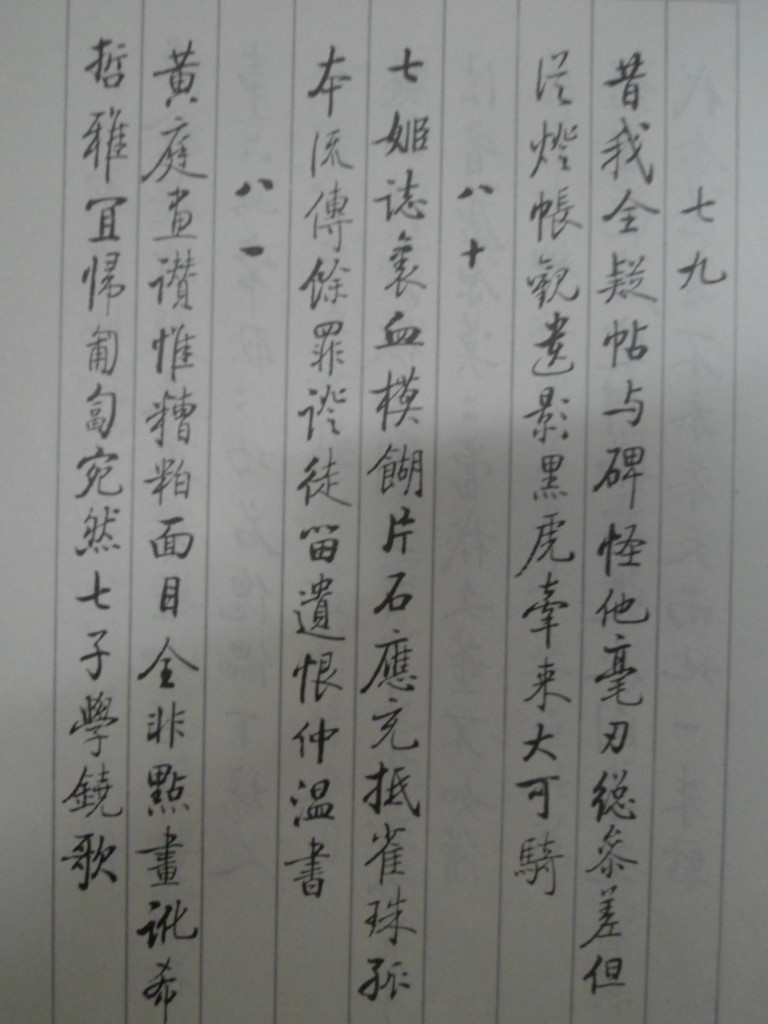 七九
昔我全疑帖与碑怪他毫刃總參差但
從燈帳觀遺影黑虎牽来大可騎
八十
七姬誌裏血模餬片石應充抵雀珠孤
本流傳餘罪證徒留遺恨仲温書
八一
黄庭畫讚惟糟粕面目全非點畫訛希
哲雅宜歸匍匐宛然七子學鐃歌